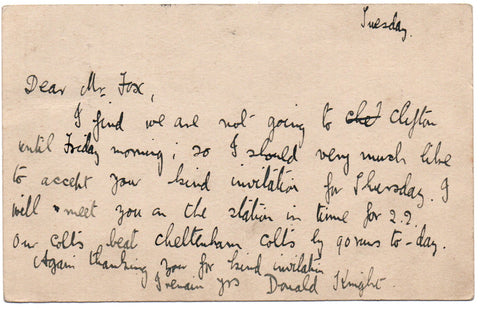 Tuesday.
Dear Mr. Fox,
I find we are not going to che' Clifton
until Friday morning; so I should very much like
to accept your kind invitation for Thursday. I
will meet you on the station in time for 2.2.
Our colts beat cheltenham colts by 90 runs to-day.
Again thanking you for kind invitation
I remain yrs Donald Knight.